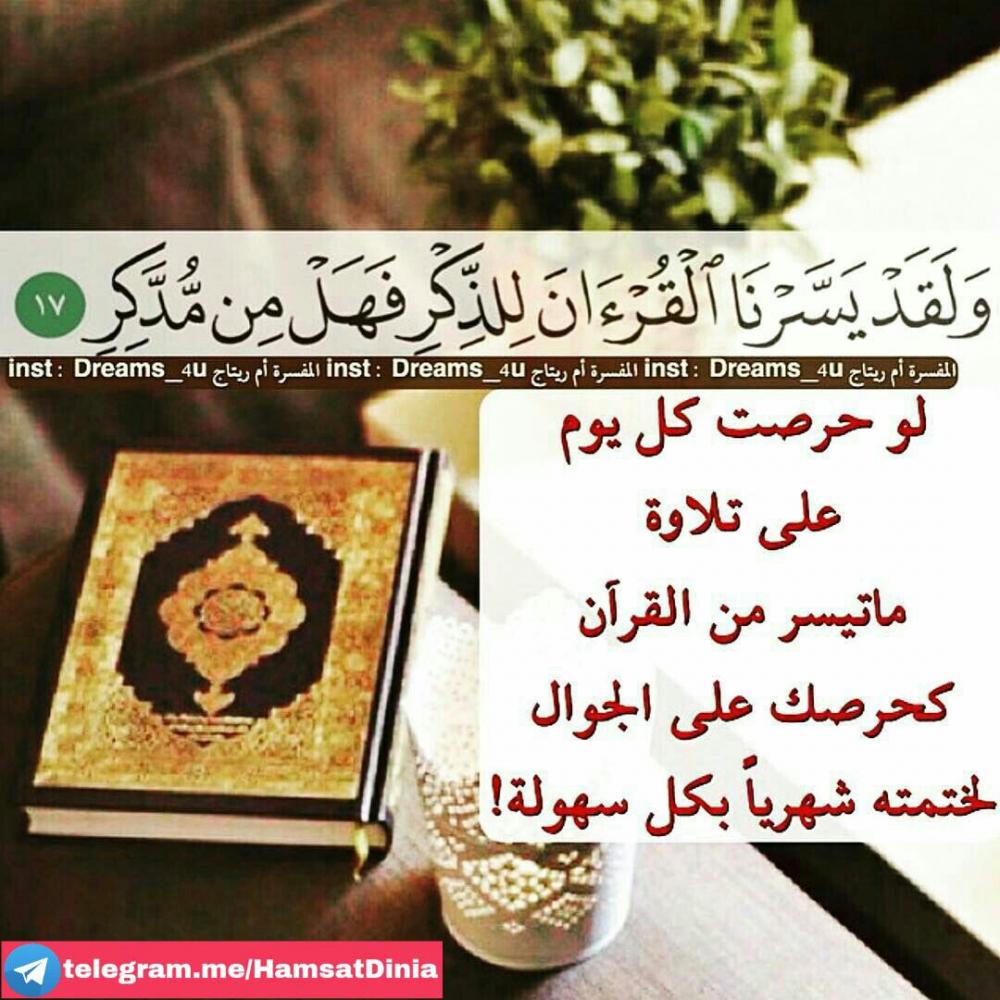 وَلَقَدْ يَسَّرْنَا ٱلْقُرْءَانَ لِلذِّكْرِ فَهَلْ مِن مُّدَّكِرٍ ١٧
inst : Dreams_4u المفسرة أم ريتاج inst : Dreams_4u المفسرة أم ريتاج inst : Dreams_4u المفسرة أم ريتاج
لو حرصت كل يوم
على تلاوة
ماتيسر من القرآن
كحرصك على الجوال
لختمته شهرياً بكل سهولة!
telegram.me/HamsatDinia